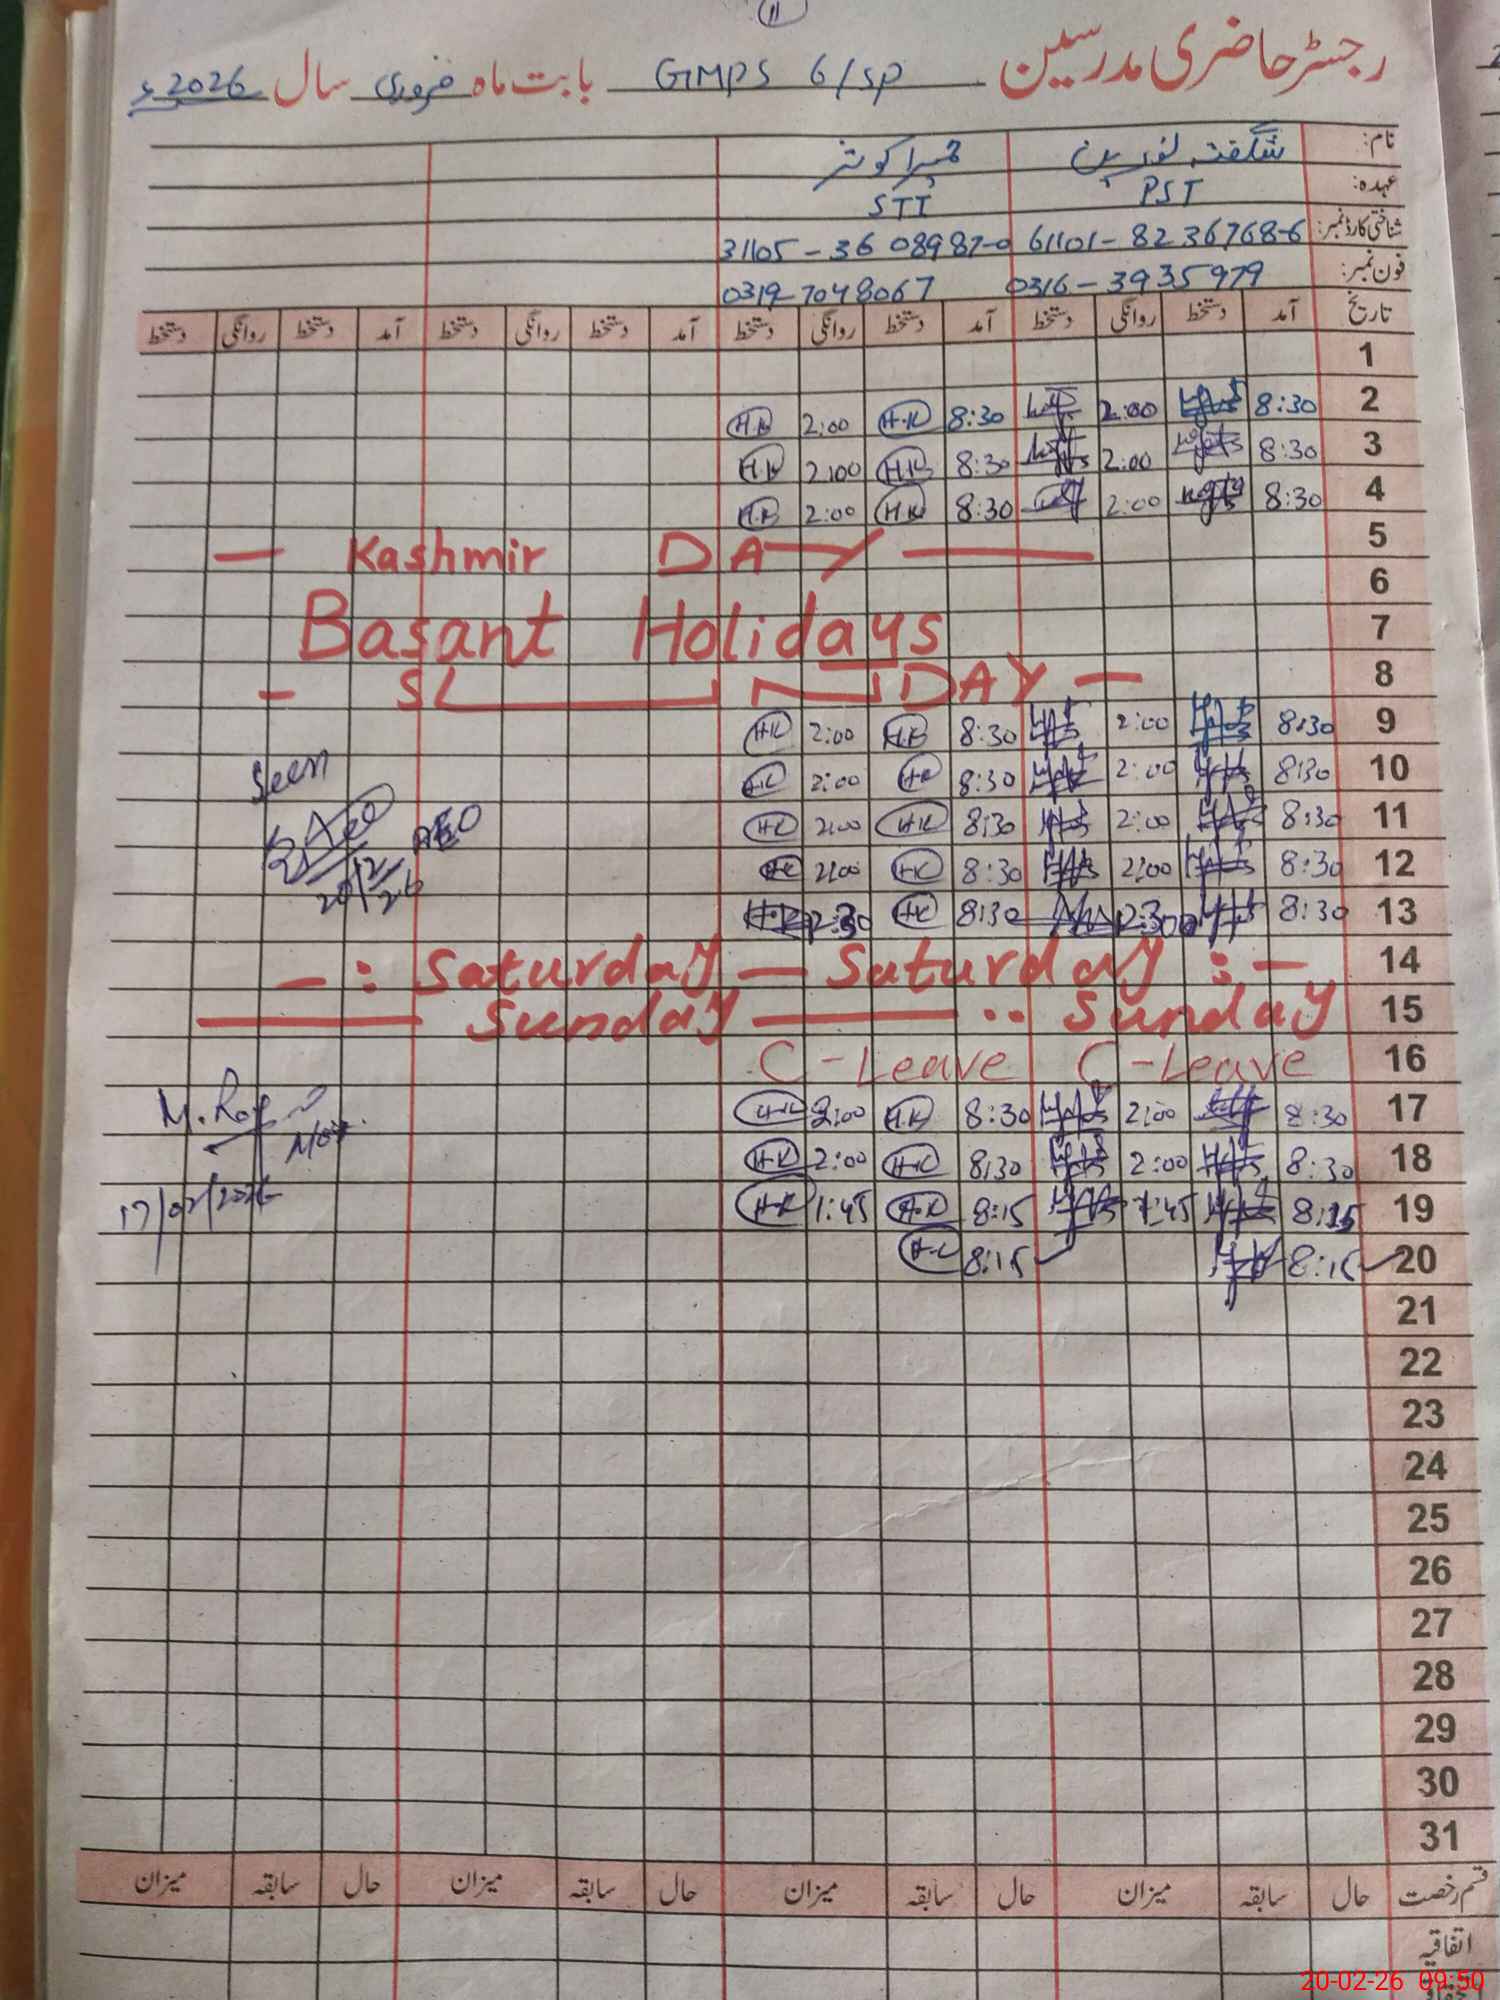 11
رجسٹر حاضری مدرسین GMPS 6/SP بابت ماہ فروری سال 2026ء
نام: شگفتہ نورین
عہدہ: PST STI
شناختی کارڈ نمبر: 61101-8236768-6 31105-3608987-0
فون نمبر: 0316-3935979 0319-7048067
تاریخ آمد دستخط روانگی دستخط آمد دستخط روانگی دستخط آمد دستخط روانگی دستخط آمد دستخط روانگی دستخط
1
2 8:30 2:00 8:30 H.K 2:00 H.K
3 8:30 2:00 8:30 H.K 2:00 H.K
4 8:30 2:00 8:30 H.K 2:00 H.K
5 Kashmir DAY
6
7 Basant Holidays
8 DAY
9 8:30 2:00 8:30 H.K 2:00 H.K
10 8:30 2:00 8:30 H.K 2:00 H.K
Seen
11 8:30 2:00 8:30 H.K 2:00 H.K
AEO
12 8:30 2:00 8:30 H.K 2:00 H.K
20/2/26
13 8:30 12:30 8:30 H.K 12:30 H.K
14 -: Saturday — Saturday :-
15 Sunday — Sunday
16 C-Leave C-Leave
17 8:30 2:00 8:30 H.K 2:00 H.K
18 8:30 2:00 8:30 H.K 2:00 H.K
19 8:15 1:45 8:15 H.K 1:45 H.K
17/02/2026
20 8:15 8:15 H.K
21
22
23
24
25
26
27
28
29
30
31
قسم رخصت حال سابقہ میزان حال سابقہ میزان حال سابقہ میزان حال سابقہ میزان
اتفاقیہ
20-02-26 09:50